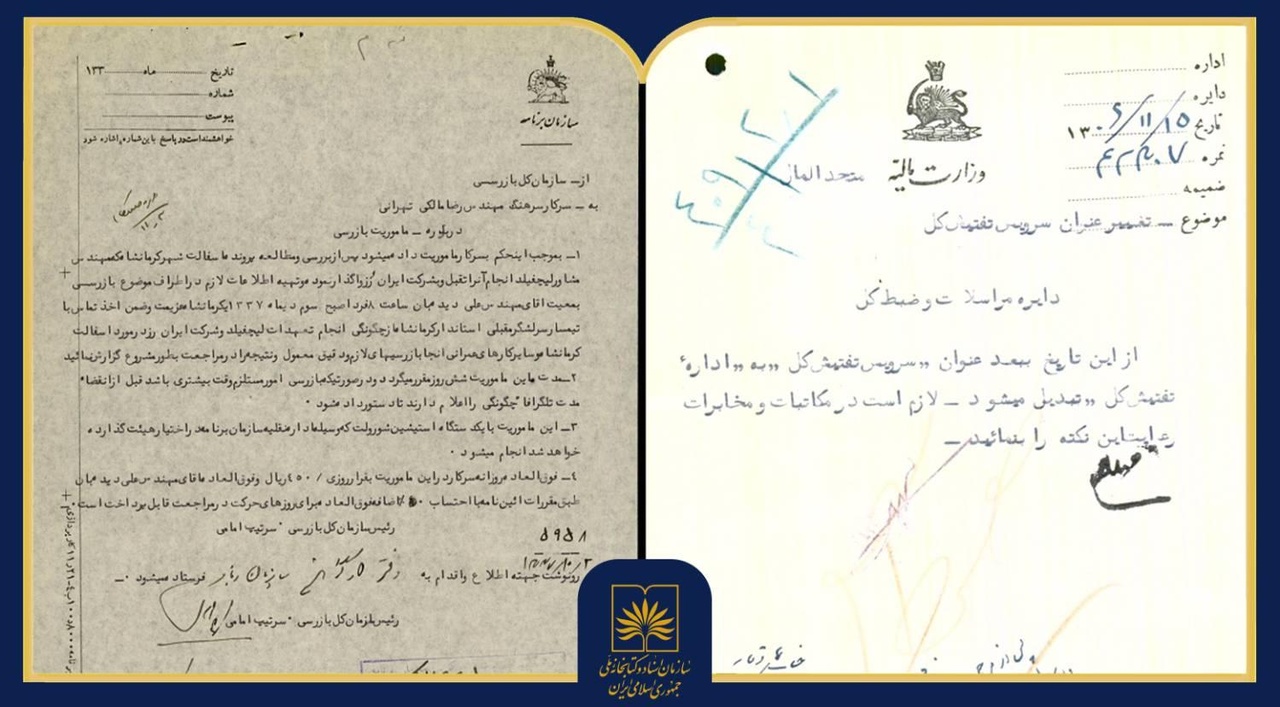 اداره
دایره
تاریخ ۱۳۰۶/۱۱/۱۵
نمره ۴۲۴۰۷
ضمیمه
وزارت مالیه
متحد المآل
موضوع ــ تغییر عنوان سرویس تفتیش کل
دایره مراسلات و ضبط کل
از این تاریخ ببعد عنوان ,,سرویس تفتیش کل ,, به ,, اداره
تفتیش کل ,, تبدیل میشود ــ لازم است در مکاتبات و مخابرات
رعایت این نکته را بنمائید ــ
تاریخ ماه ۱۳۳
شماره
پیوست
خواهشمند است در پاسخ باین شماره اشاره شود
سازمان برنامه
از ــ سازمان کل بازرسی
به ــ سرکار سرهنگ مهندس رضا مالکی تهرانی
درباره ــ ماموریت بازرسی
۱ــ بموجب اینحکم بسرکار ماموریت داده میشود پس از بررسی ومطالعه پرونده اسفالت شهر کرمانشاه که مهندس
مشاور لیچفیلد انجام آنرا تقبل وبشرکت ایران رزواگذار نموده وتهیه اطلاعات لازم در اطراف موضوع بازرسی
بمعیت اقای مهندس علی دیده بان ساعت ۸ فردا صبح سوم دیماه ۱۳۳۷ بکرمانشاه عزیمت وضمن اخذ تماس با
تیمسار سرلشگر مقبلی استاندار کرمانشاه از چگونگی انجام تعهدات لیچفیلد وشرکت ایران رزد رمورد اسفالت
کرمانشاه وسایر کارهای عمرانی انجا بازرسیهای لازم ودقیق معمول ونتیجه را در مراجعت بطور مشروع گزارش نمائید
۲ــ مدت ماین ماموریت شش روز مقرر میگردد ودر صورتیکه بازرسی امور مستلزم وقت بیشتری باشد قبل از انقضاء
مدت تلگرافا چگونگی را اعلام دارند تا دستور داده شود .
۳ــ این ماموریت با یکدستگاه استیشین شورولت که وسیله اداره نقلیه سازمان برنامه در اختیار هیئت گذارده
خواهد شد انجام میشود .
۴ــ فوق العاده روزانه سرکار در این ماموریت بقرار روزی /۴۵۰ ریال وفوق العاده اقای مهندس علی دیده بان
طبق مقررات ائین نامه با احتساب ۵۰٪ اضافه فوق العاده برای روزهای حرکت در مراجعت قابل پرداخت است .
رئیس سازمان کل بازرسی . سرتیپ امامی
۵۹۵۸
رونوشت جهته اطلاع واقدام به دفتر سازمان برنامه فرستاده میشود . ــ
رئیس سازمان کل بازرسی . سرتیپ امامی
سازمان اسناد و کتابخانه ملی
جمهوری اسلامی ایران